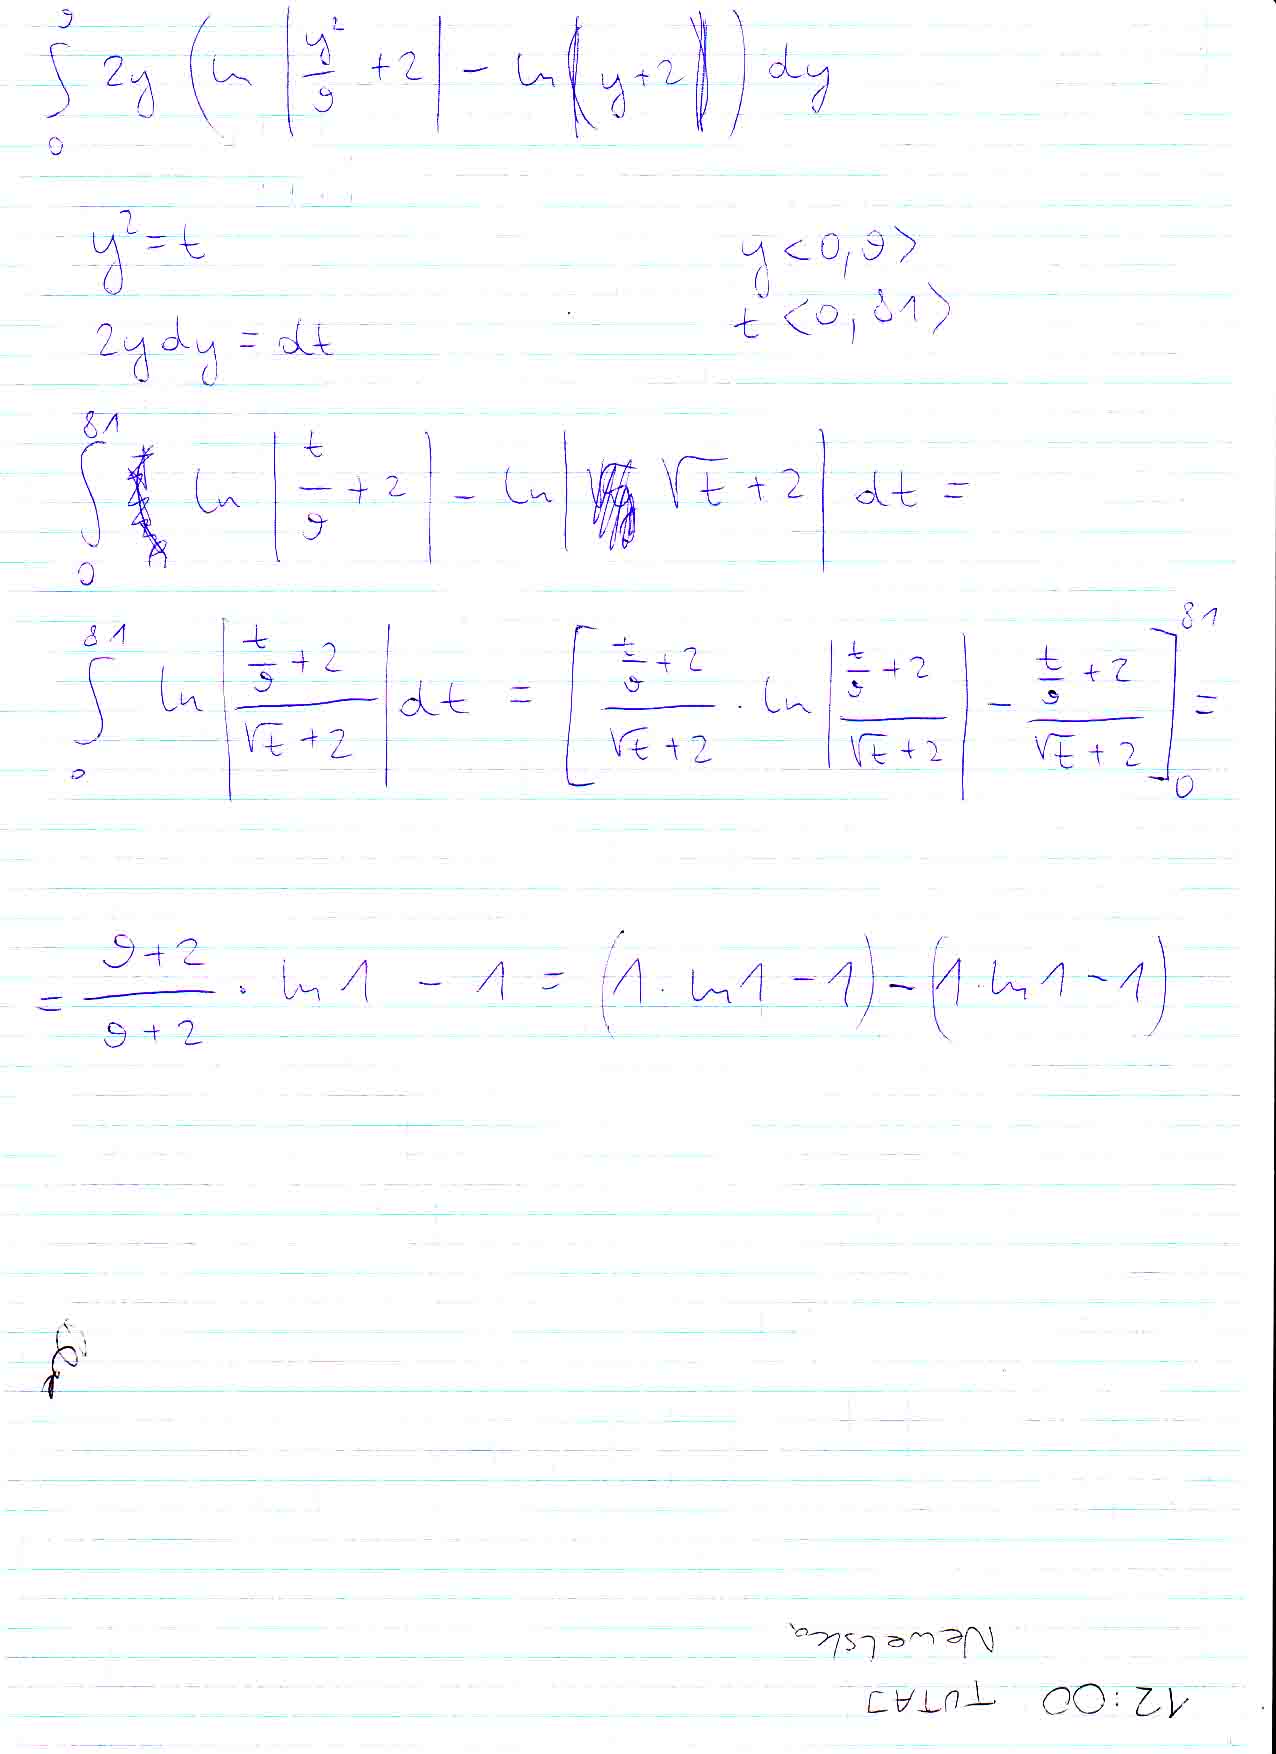 ∫₀⁹ 2y (ln |y²/9 + 2| − ln |y+2|) dy
y² = t y <0,9>
2y dy = dt t <0,81>
∫₀⁸¹ ln |t/9 + 2| − ln |√t + 2| dt =
∫₀⁸¹ ln |(t/9 + 2)/(√t + 2)| dt = [(t/9 + 2)/(√t + 2) · ln |(t/9 + 2)/(√t + 2)| − (t/9 + 2)/(√t + 2)]₀⁸¹ =
= (9+2)/(9+2) · ln 1 − 1 = (1 · ln 1 − 1) − (1 · ln 1 − 1)
12:00 TUTAJ
Newelska